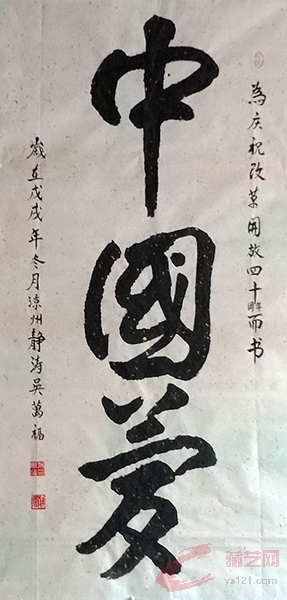 為庆祝改革開放四十周年而书
中國夢
歲在戊戌年冬月涼州靜涛吴萬福
藏艺网
ys121.com